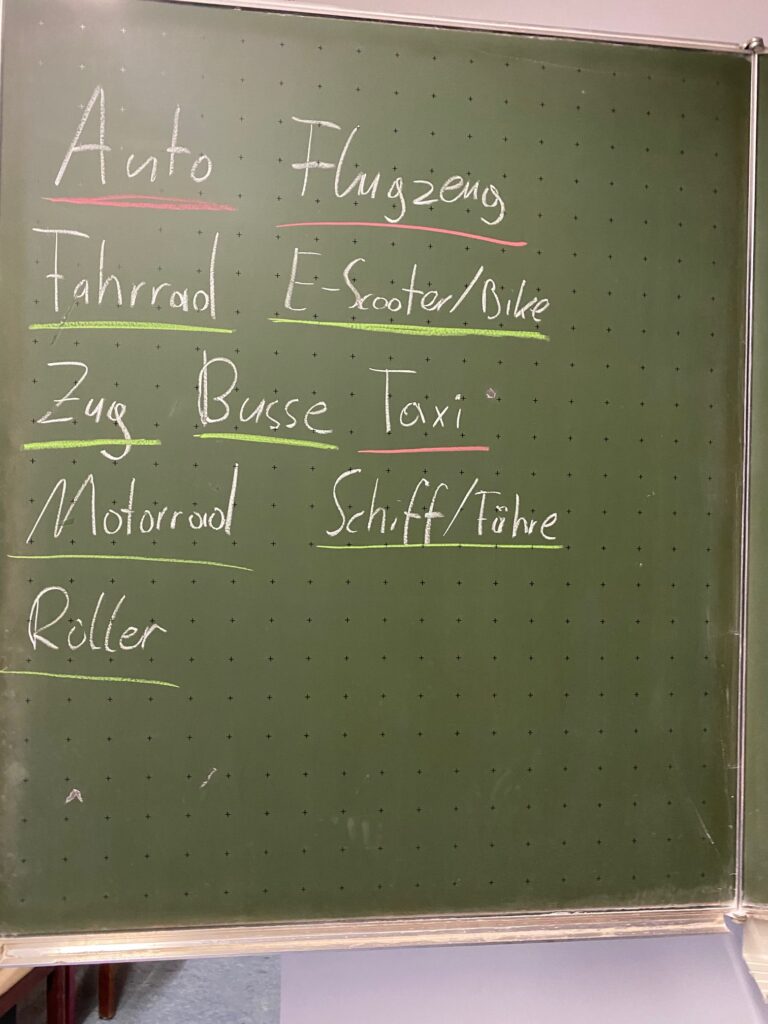 Auto Flugzeug
Fahrrad E-Scooter/Bike
Zug Busse Taxi
Motorrad Schiff/Fähre
Roller